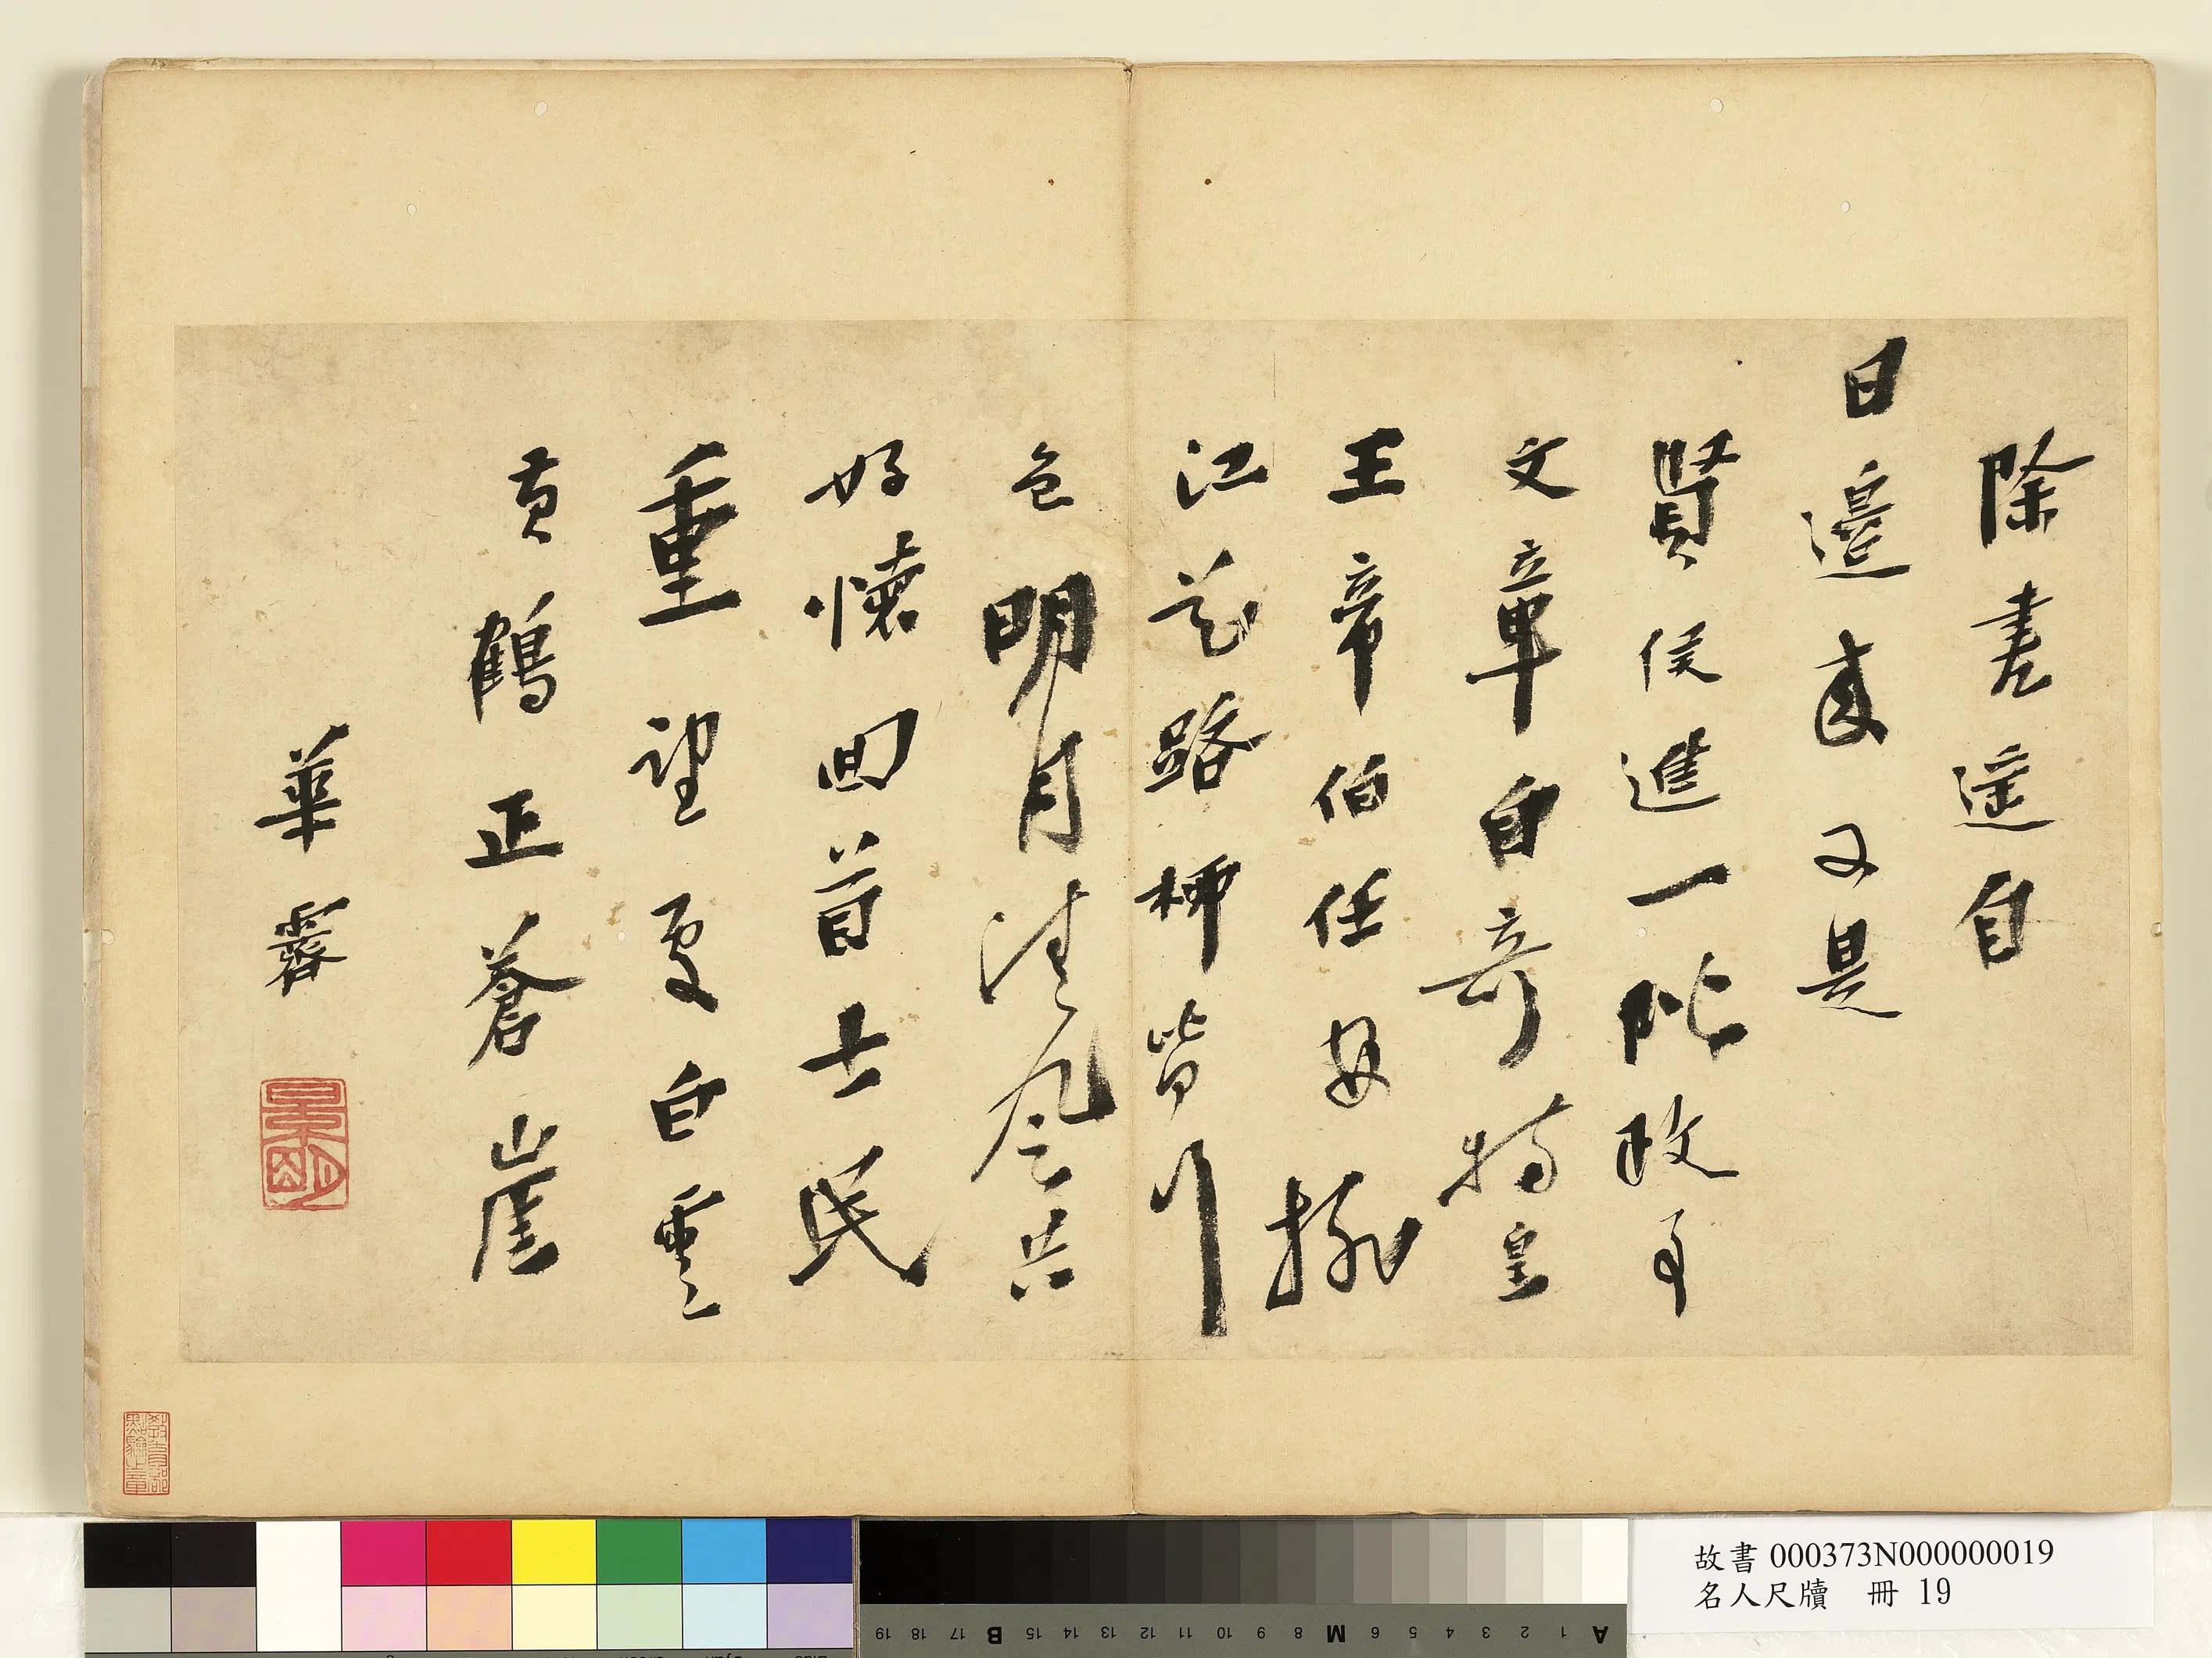 除書遙自
日邊來又是
賢侯進一階政事
文章自奇特皇
王帝伯任安排
江花路柳皆行
色明月清風共
好懷回首士民
重望處白雲
黃鶴正蒼崖
華霽
故書 000373N000000019
名人尺牘 冊 19
A 1 2 3 4 5 6 M 8 9 10 11 12 13 14 15 B 17 18 19